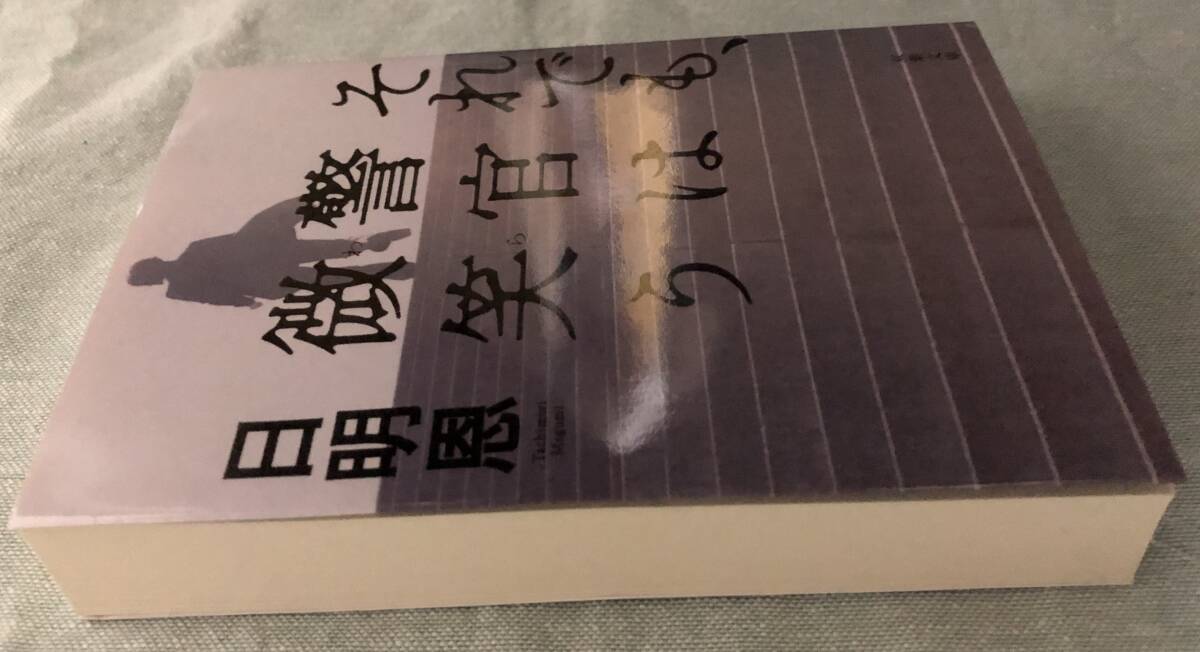 それでも、
警官は
わら
微笑う
日明恩
Tachimori
Megumi